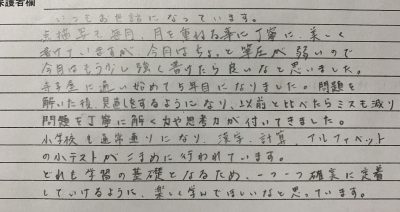 保護者欄
いつもお世話になっています。
点描写も毎月、月を重ねる毎に丁寧に、美しく
書けていますが、今月はちょっと筆圧が弱いので
今月はもう少し強く書けたら良いなと思いました。
寺子屋に通い始めて5年目になりました。問題を
解いた後、見直しをするようになり、以前と比べたらミスも減り
問題を丁寧に解く力や思考力が付いてきました。
小学校も通常通りになり、漢字、計算、アルファベット
の小テストがこまめに行われています。
どれも学習の基礎となるため、一つ一つ確実に定着
していけるように、楽しく学んでほしいなと思っています。